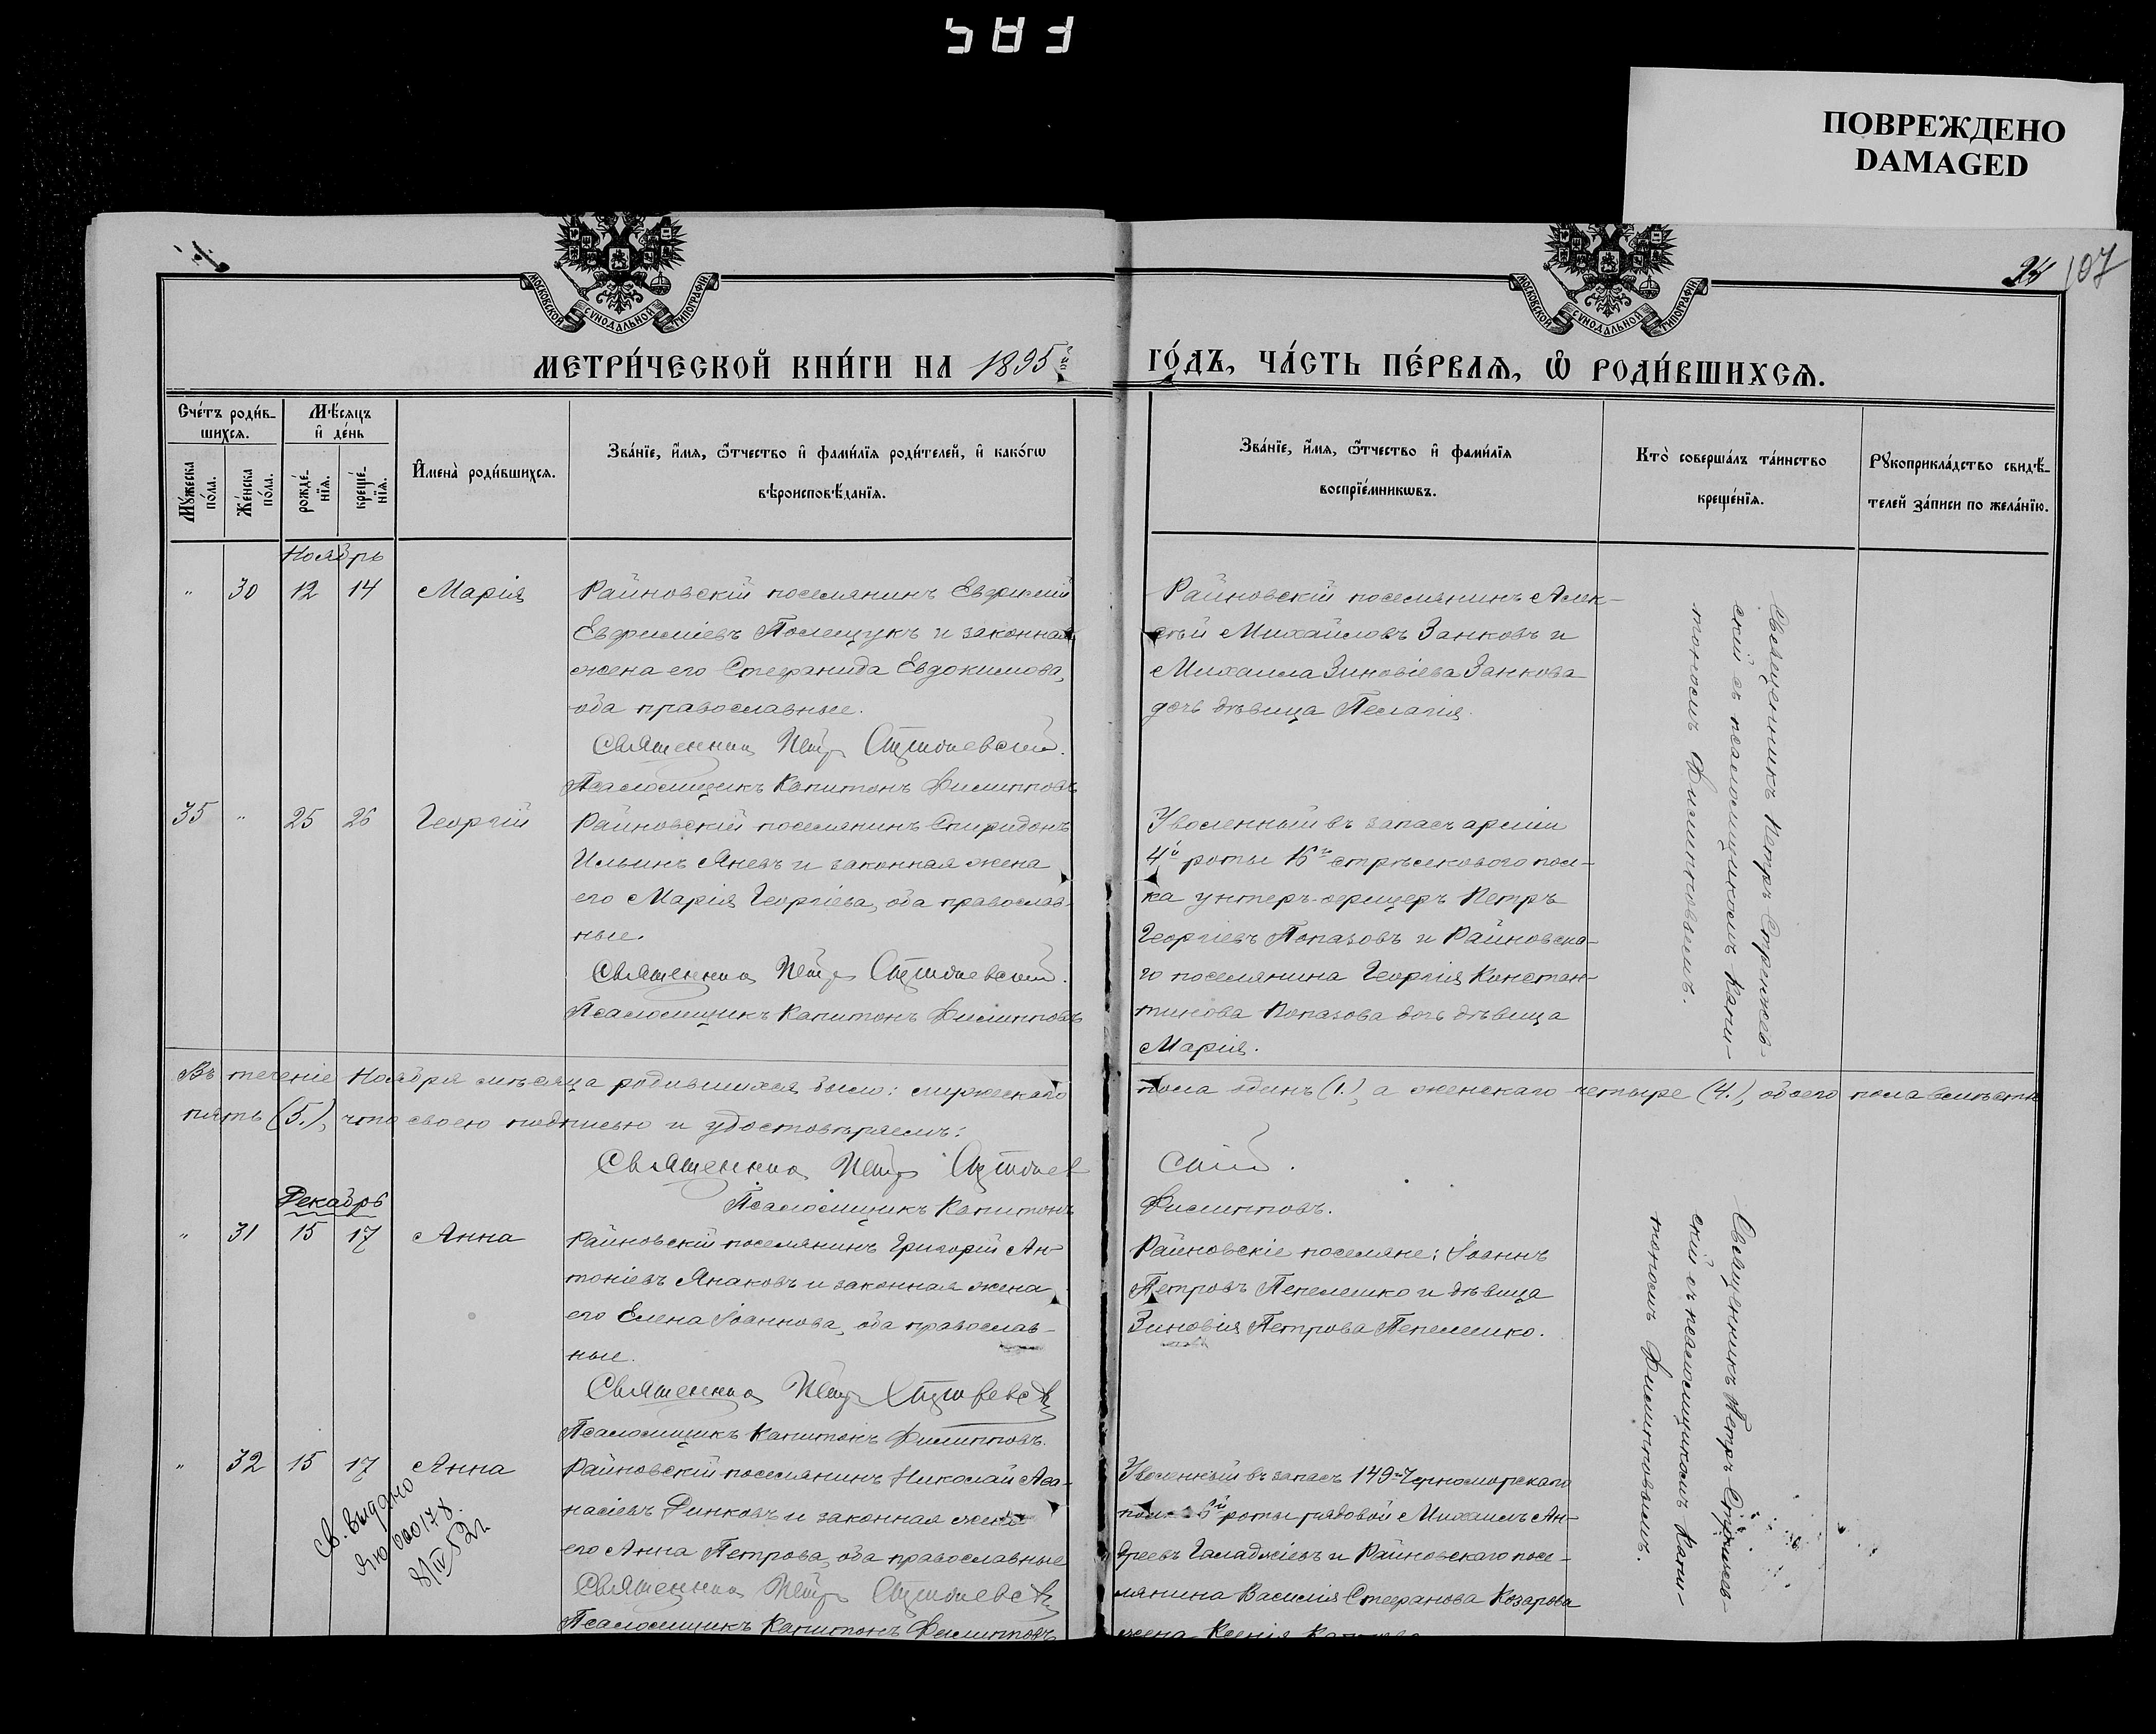 ПОВРЕЖДЕНО
DAMAGED
107
МОСКОВСКОЙ СѴНОДАЛЬНОЙ ТИПОГРАФІИ
МОСКОВСКОЙ СѴНОДАЛЬНОЙ ТИПОГРАФІИ
МЕТРИ́ЧЕСКОЙ КНИ́ГИ НА 1895й
ГО́ДЪ, ЧА́СТЬ ПЕ́РВАѦ, Ѡ҆ РОДИ́ВШИХСѦ.
Сче́тъ роди́в-
шихсѧ.
Мꙋ́жеска по́ла.
Же́нска по́ла.
Мѣ́сѧцъ
и҆ де́нь
рожде́-
нїѧ.
креще́-
нїѧ.
И҆мена̀ роди́вшихсѧ.
Зва́нїе, и҆́мѧ, ѻ҆́тчество и҆ фами́лїѧ роди́телей, и҆ како́гѡ
вѣроисповѣ́данїѧ.
Зва́нїе, и҆́мѧ, ѻ҆́тчество и҆ фами́лїѧ
воспрїе́мникѡвъ.
Кто̀ соверша́лъ та́инство
креще́нїѧ.
Рꙋкоприкла́дство свидѣ́-
телей за́писи по жела́нїю.
Ноябрь
" 30 12 14 Марія
Райновскій поселянинъ Евфимій
Евфиміевъ Полещукъ и законная
жена его Стефанида Евдокимова,
оба православные.
Священникъ Петръ
Псаломщикъ Капитонъ Филипповъ
Райновскій поселянинъ Алек-
сѣй Михайловъ Занковъ и
Михаила Зиновіева Занкова
дочь дѣвица Пелагія.
Священникъ Петръ Стрижев-
скій съ псаломщикомъ Капи-
тономъ Филипповымъ.
35 " 25 26 Георгій
Райновскій поселянинъ Спиридонъ
Ильинъ Яневъ и законная жена
его Марія Георгіева, оба православ-
ные.
Священникъ Петръ
Псаломщикъ Капитонъ Филипповъ
Уволенный въ запасъ арміи
4й роты 16го стрѣлковаго пол-
ка унтеръ-офицеръ Петръ
Георгіевъ Попазовъ и Райновска-
го поселянина Георгія Констан-
тинова Попазова дочь дѣвица
Марія.
Въ теченіе Ноября мѣсяца родившихся было: мужескаго
пола одинъ (1.), а женскаго четыре (4.), обоего пола вмѣстѣ
пять (5.), что своею подписью и удостовѣряемъ:
Священникъ Петръ
скій.
Псаломщикъ Капитонъ
Филипповъ.
Декабрь
" 31 15 17 Анна
Райновскій поселянинъ Григорій Ан-
тоніевъ Янаковъ и законная жена
его Елена Іоаннова, оба православ-
ные.
Священникъ Петръ
Псаломщикъ Капитонъ Филипповъ.
Райновскіе поселяне: Іоаннъ
Петровъ Пепелешко и дѣвица
Зиновія Петрова Пепелешко.
Священникъ Петръ Стрижев-
скій съ псаломщикомъ Капи-
тономъ Филипповымъ.
" 32 15 17 Анна
Св. выдано
ЯЮ 000178
Райновскій поселянинъ Николай Аѳа-
насіевъ Динковъ и законная жена
его Анна Петрова, оба православные
Священникъ Петръ
Псаломщикъ Капитонъ Филипповъ
Уволенный въ запасъ 149го Черноморскаго
роты рядовой Михаилъ Ан-
дреевъ Галаджіевъ и Райновскаго посе-
лянина Василія Стефанова Козарова
жена Ксенія